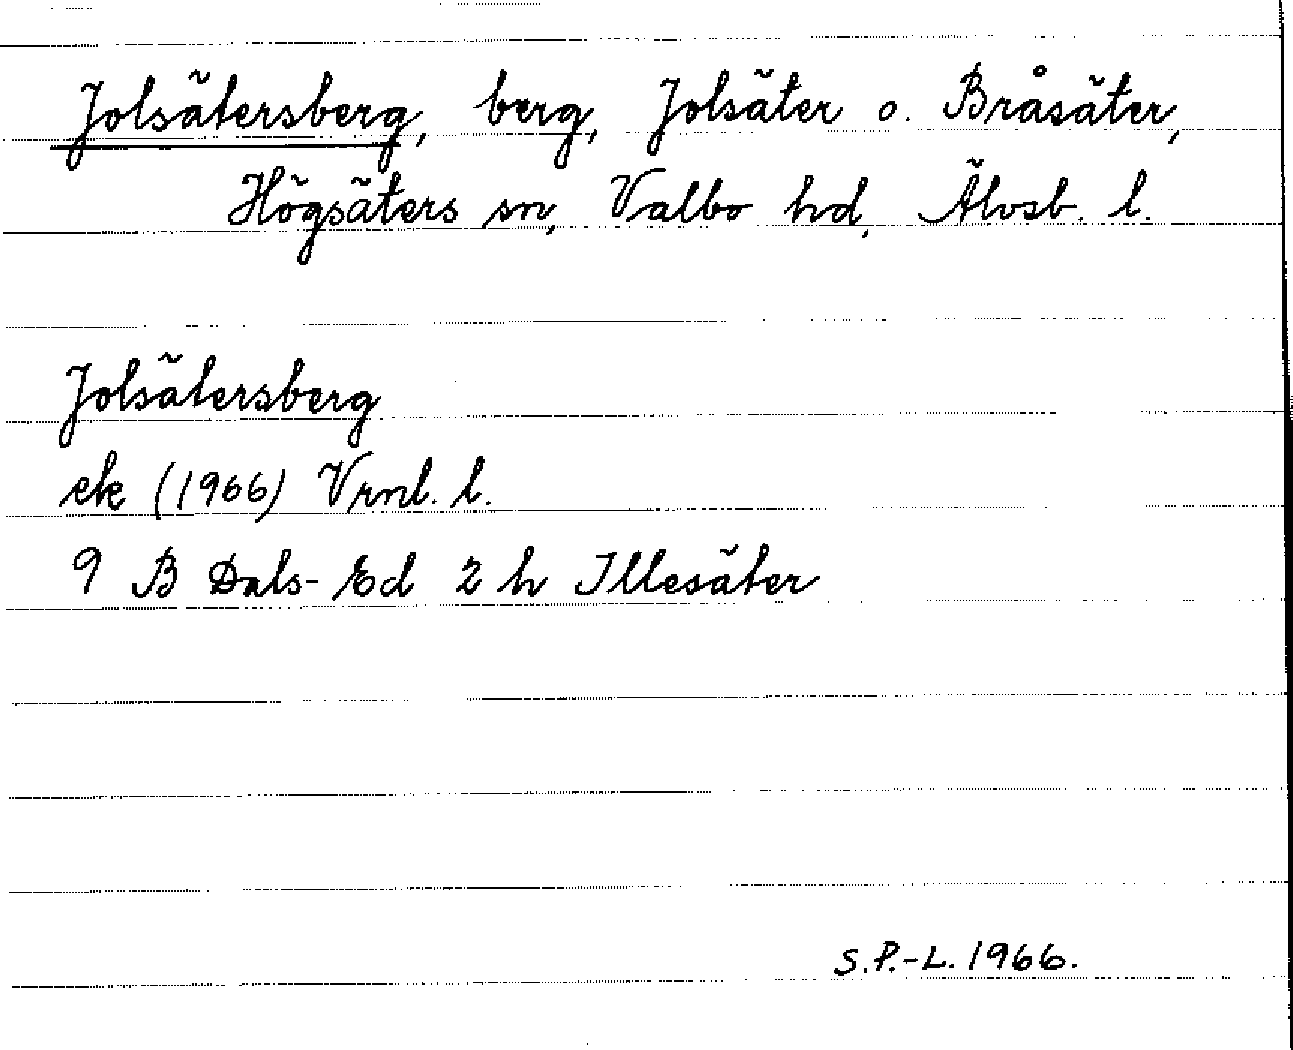 Jolsätersberg, berg, Jolsäter o. Bråsäter,
Högsäters sn, Valbo hd, Älvsb. l.
Jolsätersberg
ek (1966) Vrml. l.
9 B Dals-Ed 2 h Illesäter
S.P.-L. 1966.